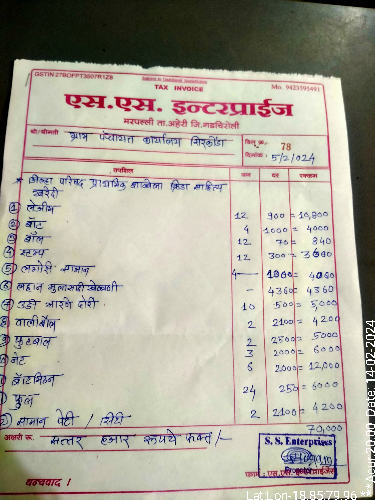 GSTIN 27BOFPT3507R1Z8
TAX INVOICE
Mo. 9423595491
एस.एस. इन्टरप्राईज
मरपल्ली ता.अहेरी जि.गडचिरोली
श्री/श्रीमती ग्राम पंचायत कार्यालय
बिल क्र.- 78
दिनांक : 5/2/024
तपशिल नग दर रक्कम
* जिल्हा परिषद प्राथमिक क्रिडा साहित्य
खरेदी
① लेझीम 12 900 = 10,800
② बॅट 4 1000 = 4000
③ बॉल 12 70 = 840
④ स्टम्प 12 300 = 3600
⑤ लगोरी सामान 4
⑥ लहान मुलासाठी खेळणी - 4360 = 4360
⑦ उडी मारने दोरी 10 500 = 5,000
⑧ वालीबॉल 2 2100 = 4200
फुटबाल 2 2500 = 5000
नेट 3 2000 = 6000
बॅटमिंटन 6 2000 = 12,000
फुल 24 250 = 6000
सामान पेटी / सिटी 2 2100 = 4200
70,000
अक्षरी रू. सत्तर हजार रूपये फक्त/-
S. S. Enterprises
Proprietor
धन्यवाद !
Lat Lon-18.8579,96
Date: 14-02-2024